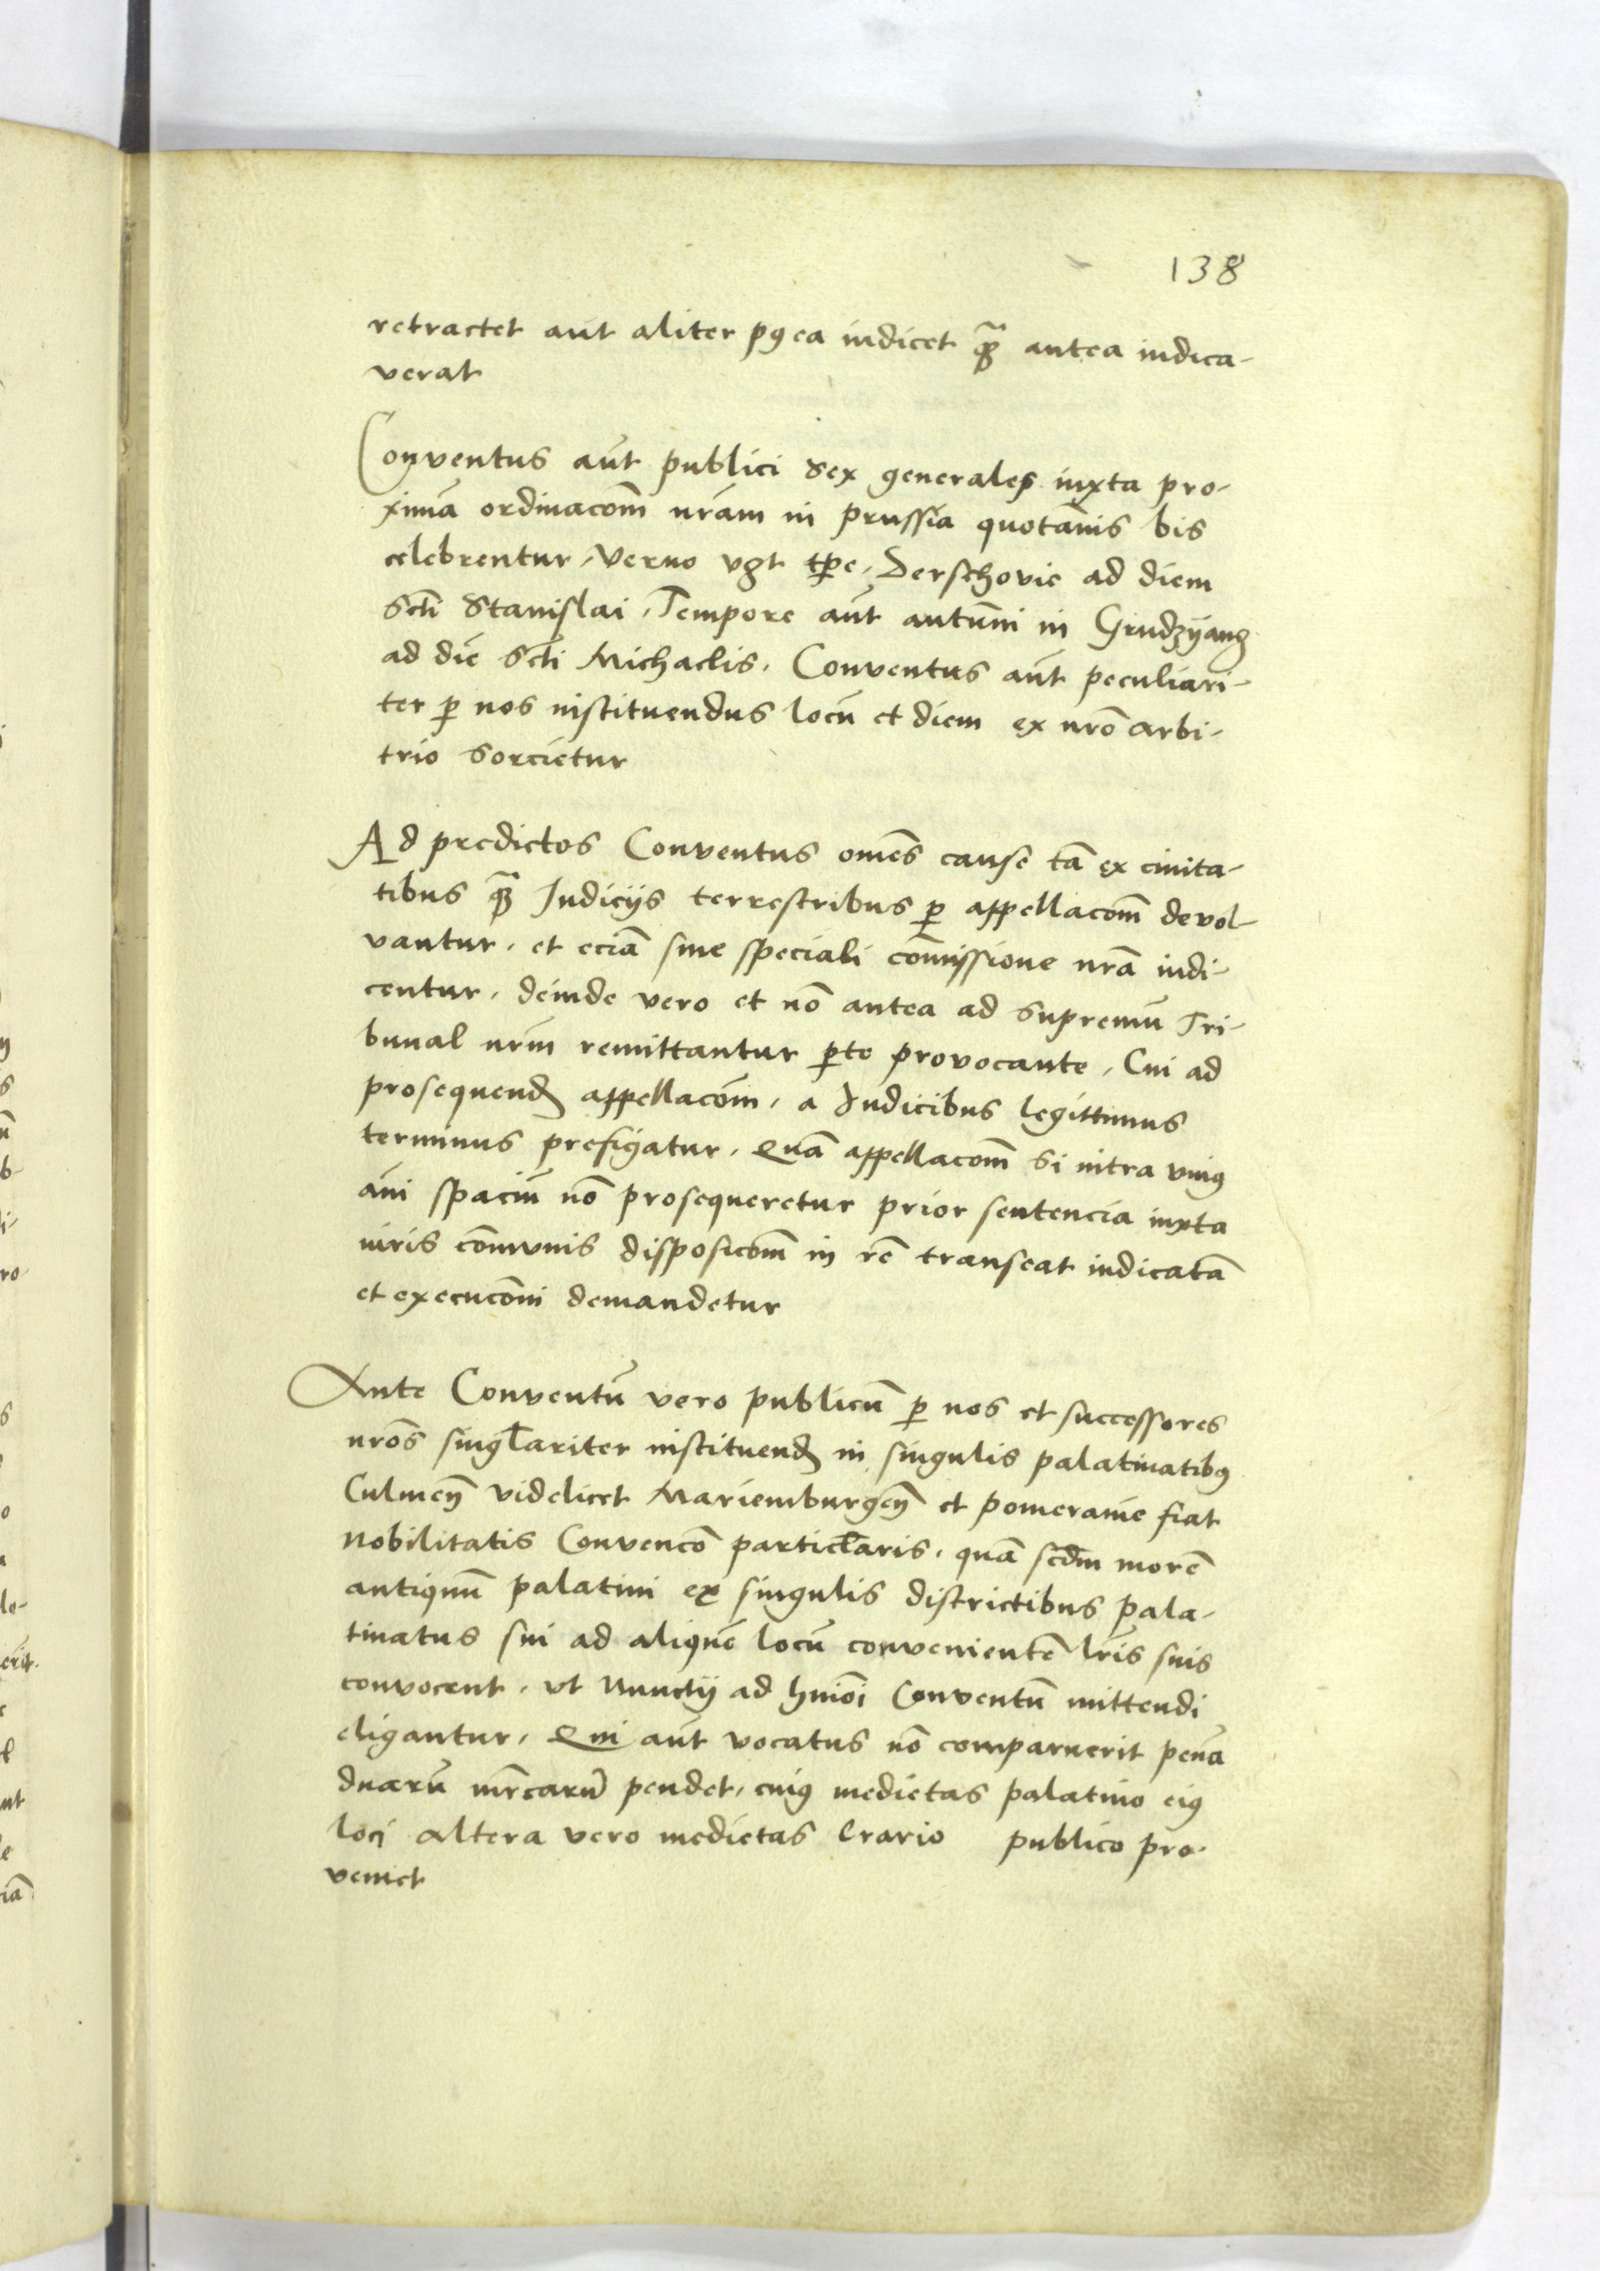 138
retractet aut aliter p9ea iudicet q̃ʒ antea iudica-
verat
Conventus aūt publici sex generales iuxta pro-
ximā ordinacōm nrām in prussia quotānis bis
celebrentur, Verno vgt tp̄e, Derschovie ad diem
Scti Stanislai, Tempore aūt autūni in Grudzyang
ad diē Scti Michaelis, Conventus aūt peculiari-
ter p̄ nos instituendus locū et diem ex nrō arbi-
trio sorcietur
Ad predictos Conventus omēs cause tā ex civita-
tibus q̃ʒ Iudicijs terrestribus p̄ appellacōm devol-
vantur, et eciā sine speciali cōmissione nrā iudi-
centur, deinde vero et nō antea ad supremū Tri-
bunal nrm̄ remittantur p̄te provocante, Cui ad
prosequend appellacōm, a Iudicibus legittimus
terminus prefigatur, Quā appellacōm si intra vni9
āni spaciū nō prosequeretur prior sentencia iuxta
iuris cōmunis disposicōm in rē transeat iudicatā
et execucōni demandetur
Ante Conventū vero publicū p̄ nos et successores
nrōs singlariter instituend in singulis palatinatib9
Culmen̄ videlicet Mariemburgen̄ et pomeranie fiat
Nobilitatis Convencō particlaris, quā scdm̄ morē
antiquū palatini ex singulis districtibus pala-
tinatus sui ad aliquē locū convenientē lrīs suis
convocent, vt Nunctij ad huiōi Conventū mittendi
eligantur, Qui aūt vocatus nō comparuerit penā
duarū mr̄carū pendet, cui9 medietas palatino ei9
loci altera vero medietas Erario publico pro-
veniet